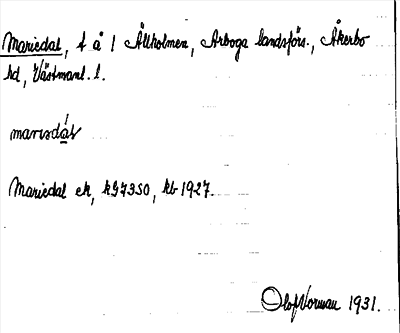 Mariedal, t å 1 Ållholmen, Arboga landsförs., Åkerbo
hd, Västmanl. l.
marıedál
Mariedal ek, kb 1927.
Olof Vorman 1931.